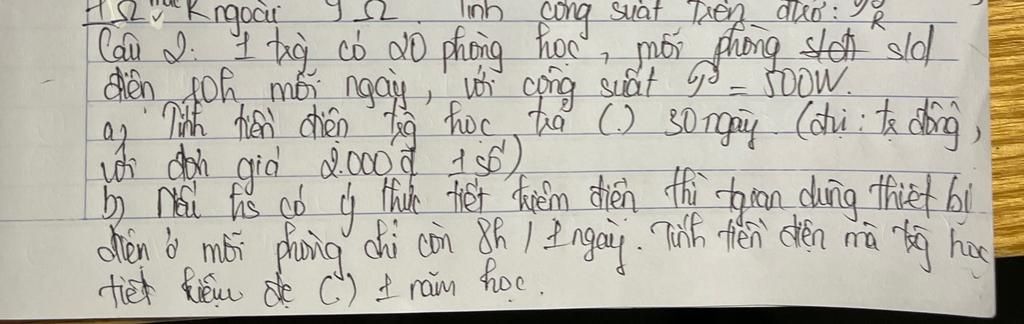 1Ω, R ngoài 9 Ω. Tính công suất trên đ : P R
Câu 2: 1 trg có 20 phòng học, mỗi phòng s/d
điện 10h mỗi ngày, với công suất P = 500W.
a) Tính tiền điện trg học trả (.) 30 ngày. (đvị: tr đồng,
với đơn giá 2.000đ 1 số)
b) Nếu hs có ý thức tiết kiệm điện thì tgian dùng thiết bị
điện ở mỗi phòng chỉ còn 8h / 1 ngày. Tính tiền điện mà trg học
tiết kiệm đc (.) 1 năm học.